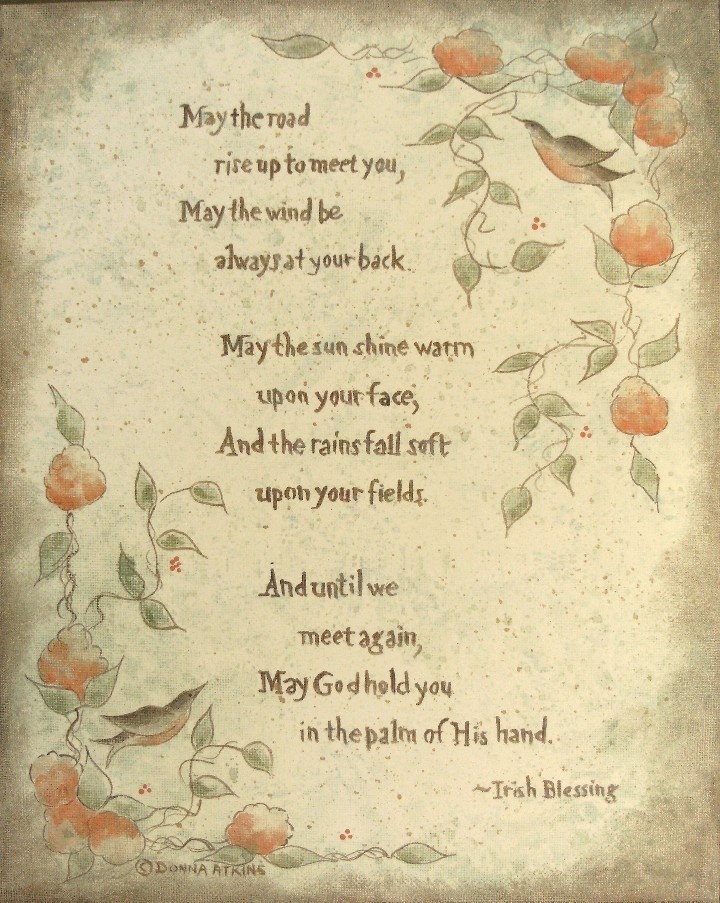 May the road
rise up to meet you,
May the wind be
always at your back.
May the sun shine warm
upon your face;
And the rains fall soft
upon your fields.
And until we
meet again,
May God hold you
in the palm of His hand.
~Irish Blessing
©DONNA ATKINS